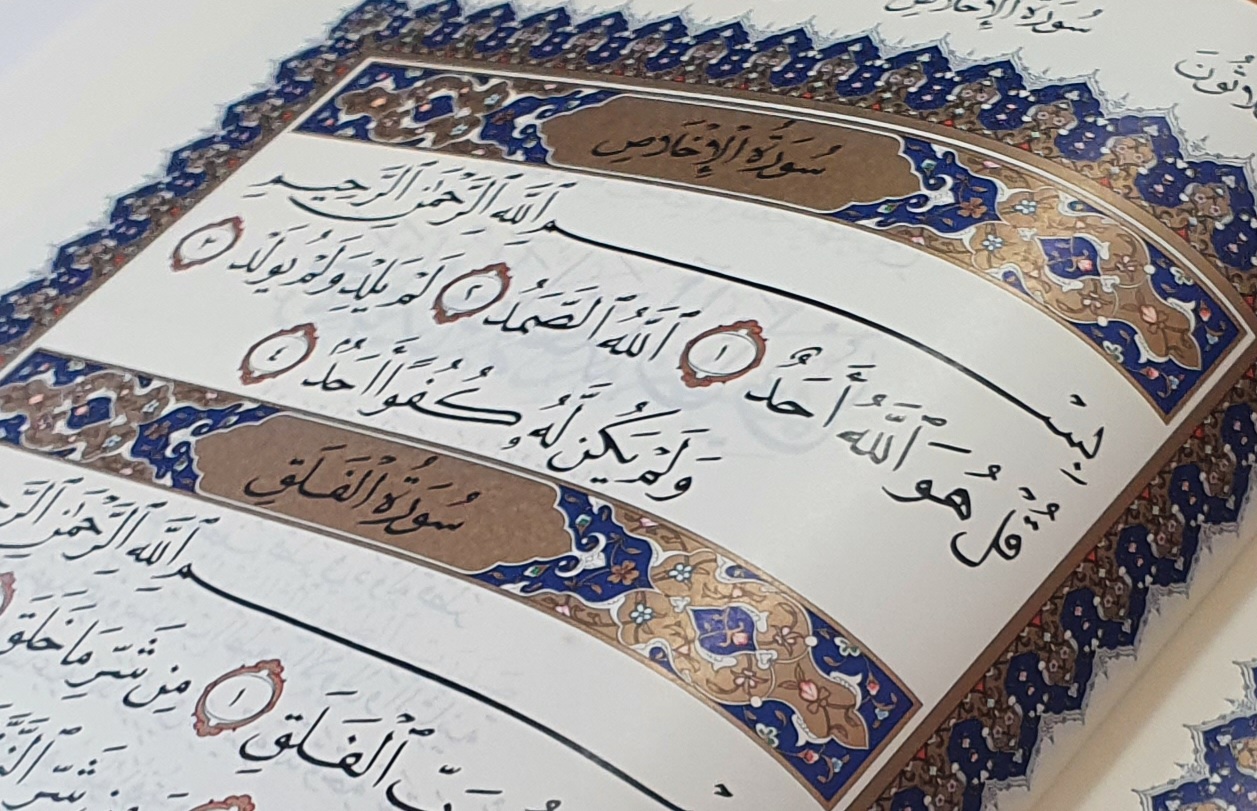 سُورَةُ الْإِخْلَاصِ
لَاثُونَ
سُورَةُ الْإِخْلَاصِ
بِسْمِ ٱللَّهِ ٱلرَّحْمَٰنِ ٱلرَّحِيمِ
قُلْ هُوَ ٱللَّهُ أَحَدٌ ١ ٱللَّهُ ٱلصَّمَدُ ٢ لَمْ يَلِدْ وَلَمْ يُولَدْ ٣
وَلَمْ يَكُن لَّهُۥ كُفُوًا أَحَدٌۢ ٤
سُورَةُ الْفَلَقِ
بِسْمِ ٱللَّهِ ٱلرَّحْمَٰنِ ٱلرَّ
بِّ ٱلْفَلَقِ ١ مِن شَرِّ مَا خَلَقَ
شَرِّ